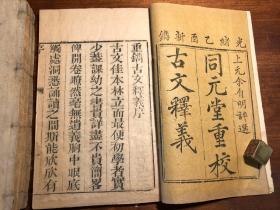 光緒乙酉新鐫
上元余自明評選
同元堂重校
古文釋義
重鐫古文釋義序
古文佳本林立而最便初學者實
少蓋課幼之書貴詳盡不貴簡畧
俾開卷瞭然毫無遺義胸中眼底
觸處洞悉誦讀之間斯能欣欣有